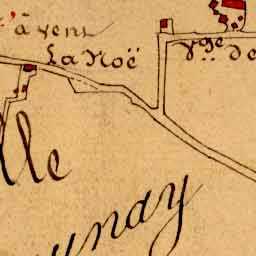 à vent
La Noë
Vge de
lle
unay